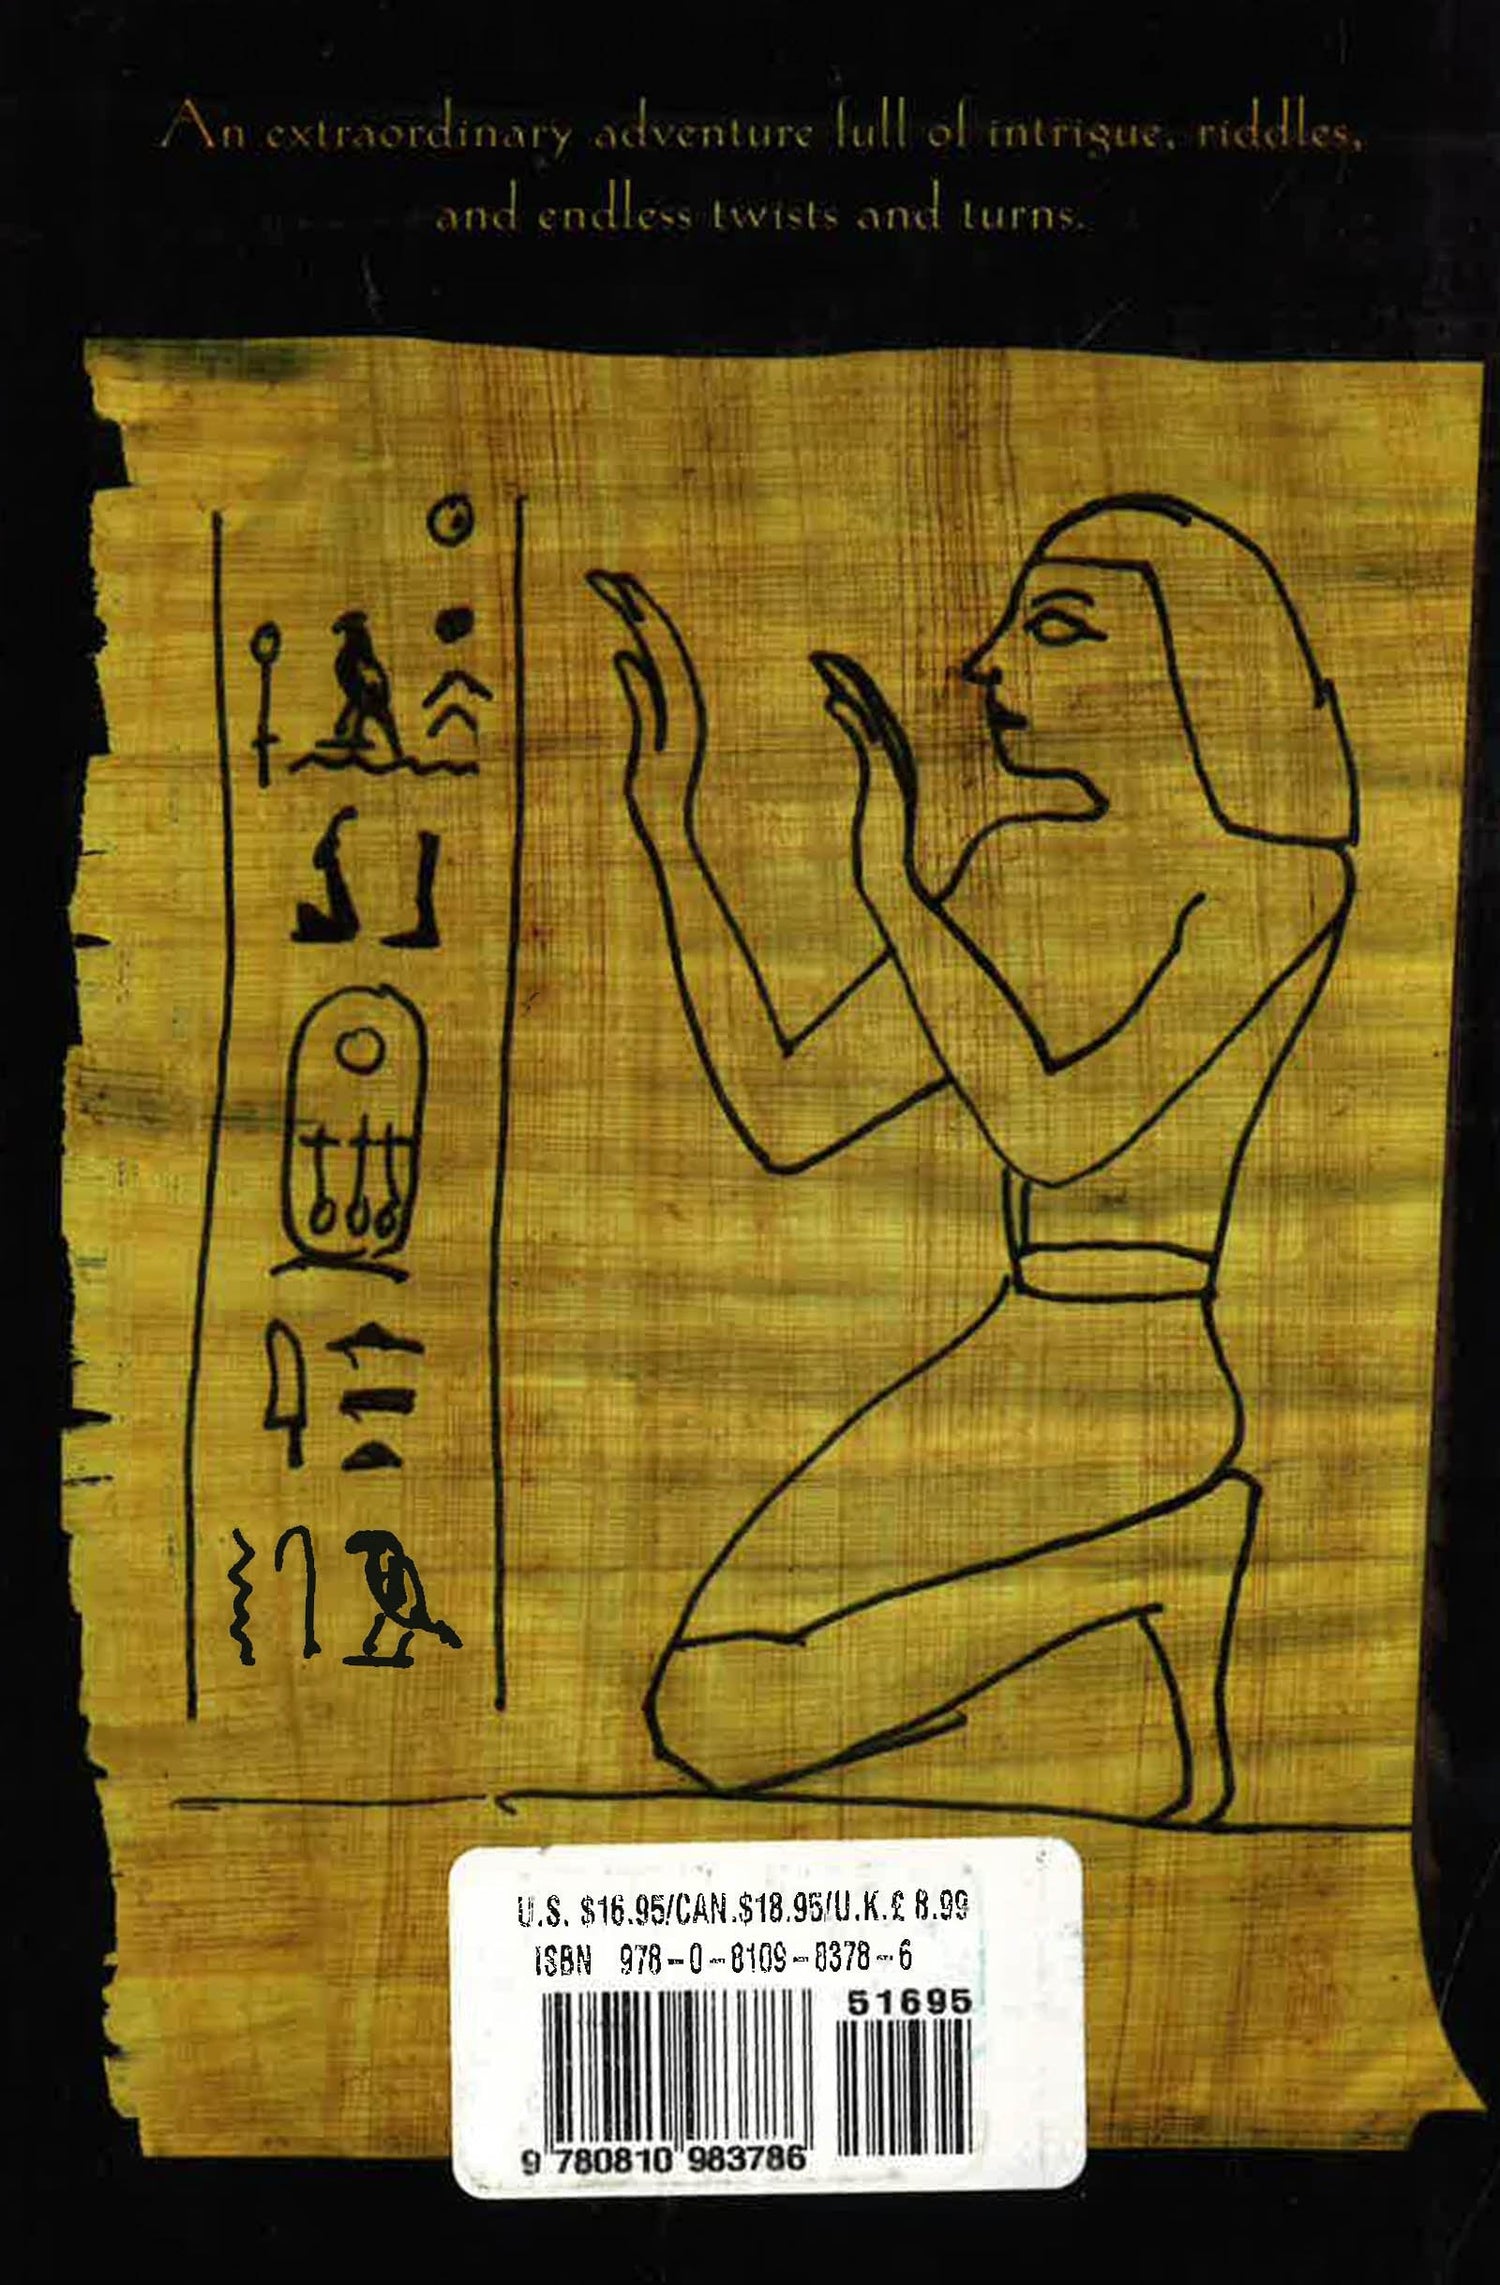 An extraordinary adventure full of intrigue, riddles,
and endless twists and turns.
U.S. $16.95/CAN.$18.95/U.K.£ 8.99
ISBN 978-0-8109-8378-6
51695
9 780810 983786